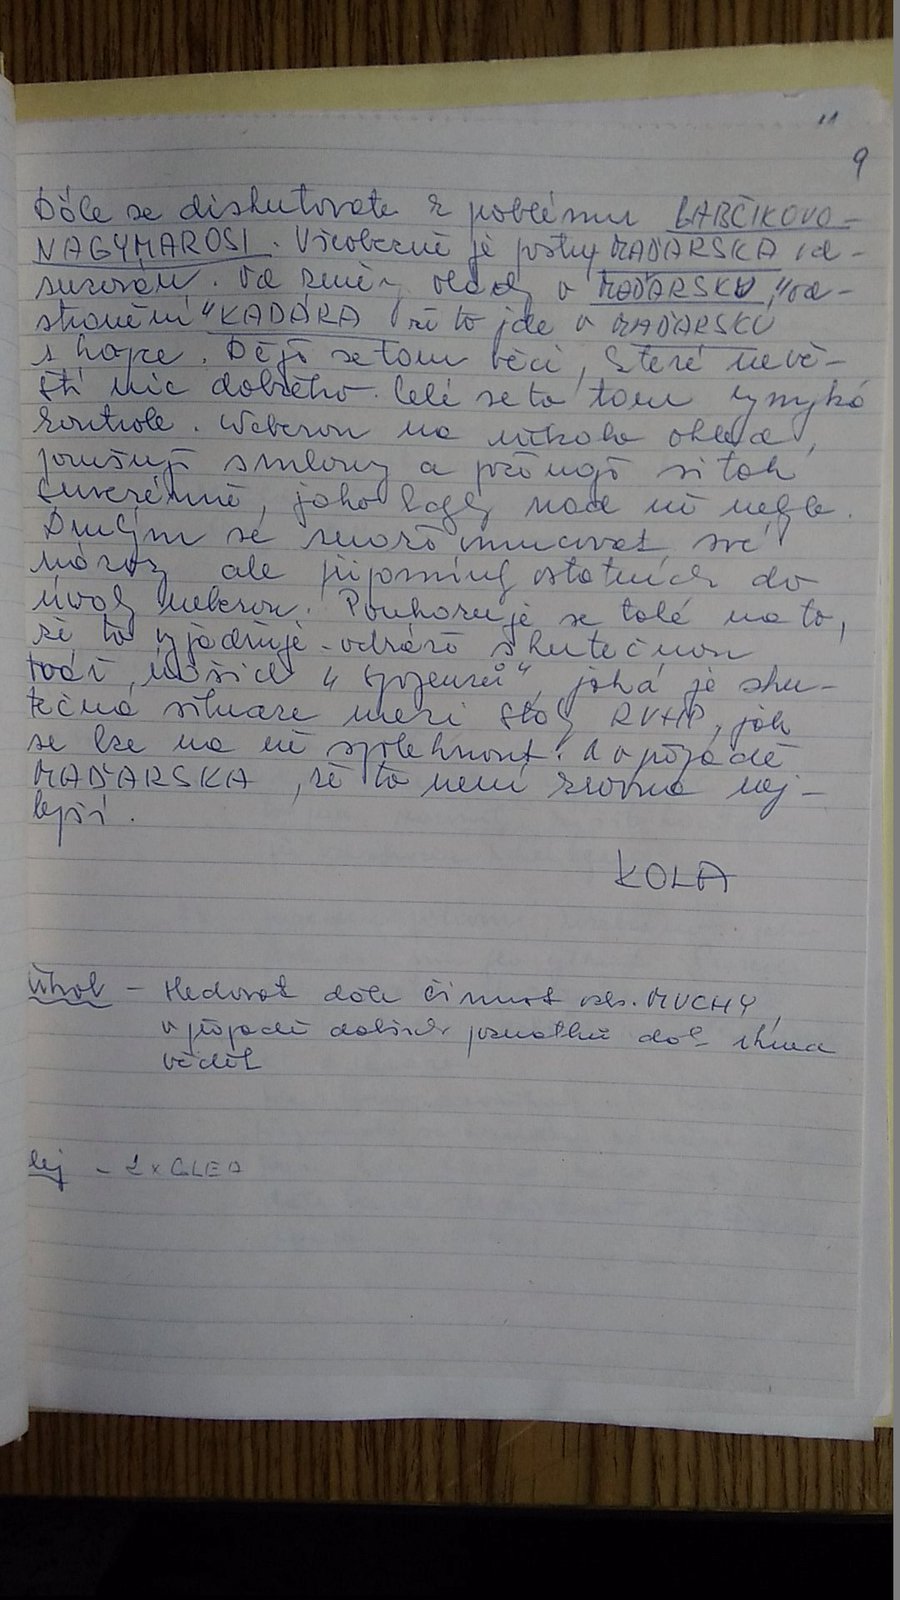 "
9
Dále se diskutovate k problému GABČIKOVO-
NAGYMAROSI. Všeobecně je postup MAĎARSKA od-
suzován. Od změny vlády v MAĎARSKU, "od-
stranění" KADÁRA že to jde v MAĎARSKU
s kopce. Dějí se tam věci, které nevě-
ští nic dobrého. Celé se to tam vymyká
kontrole. Neberou na nikoho ohled,
porušují smlouvy a počínají si tak
suverénně, jako kdyby nad ně nebylo.
Druhým se snaží vnucovat své
názory ale připomínky ostatních do
úvahy neberou. Poukazuje se také na to,
že to vyjadřuje - odráží skutečnou
tvář našich "spojenců", jaká je sku-
tečná situace mezi státy RVHP, jak
se lze na ně spolehnout. A v případě
MAĎARSKA, že to není zrovna nej-
lepší.
KOLA
Úkol - Sledovat dále činnost MUCHY,
v případě dalších poznatků dát ihned
vědět
1x GLED